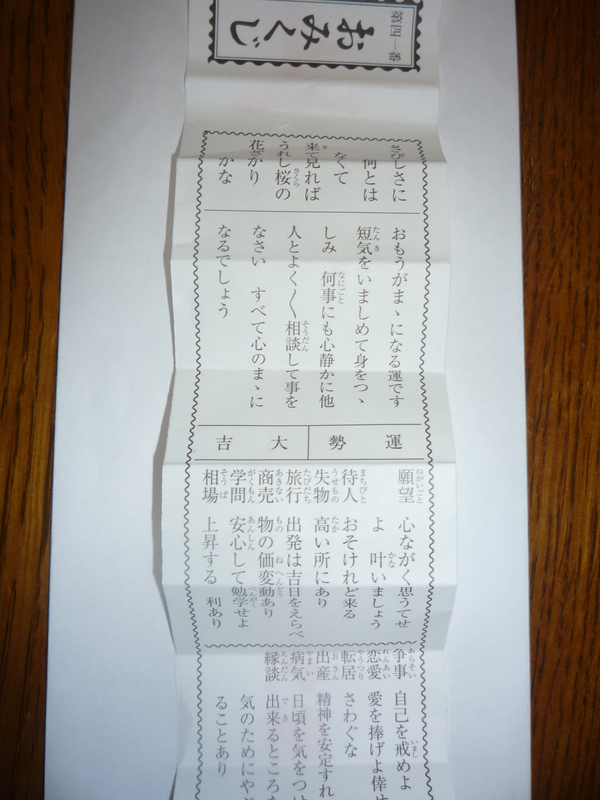 第四一番
おみくじ
さびしさに
何とは
なくて
来て見れば
うれし桜の
花ざかり
かな
おもうがまゝになる運です
短気をいましめて身をつゝ
しみ 何事にも心静かに他
人とよく〱相談して事を
なさい すべて心のまゝに
なるでしょう
運勢 大吉
願望 心ながく思うてせ
よ 叶いましょう
待人 おそけれど来る
失物 高い所にあり
旅行 出発は吉日をえらべ
商売 物の価変動あり
学問 安心して勉学せよ
相場 上昇する 利あり
争事 自己を戒めよ
恋愛 愛を捧げよ倖せ
転居 さわぐな
出産 精神を安定すれ
病気 日頃を気をつけ
縁談 出来るところを
気のためにや
ることあり